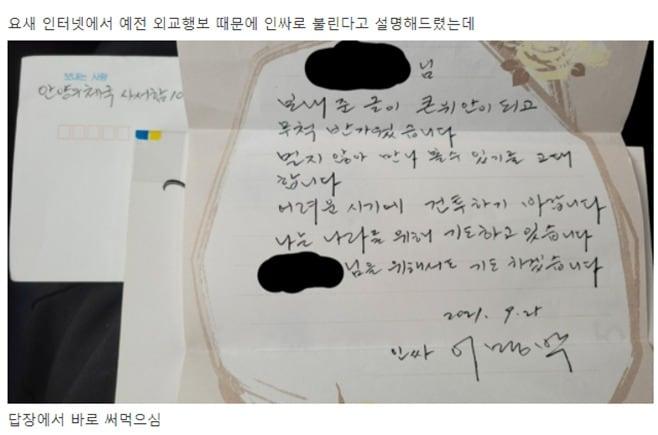 요새 인터넷에서 예전 외교행보 때문에 인싸로 불린다고 설명해드렸는데
보내는 사람
안양우체국 사서함 10
님
보내 준 글이 큰 위안이 되고
무척 반가웠습니다
멀지 않아 만나 볼 수 있기를 고대
합니다
어려운 시기에 건투하기 바랍니다
나는 나라를 위해 기도하고 있습니다
님을 위해서도 기도 하겠습니다
2021. 9. 25
인싸 이명박
답장에서 바로 써먹으심